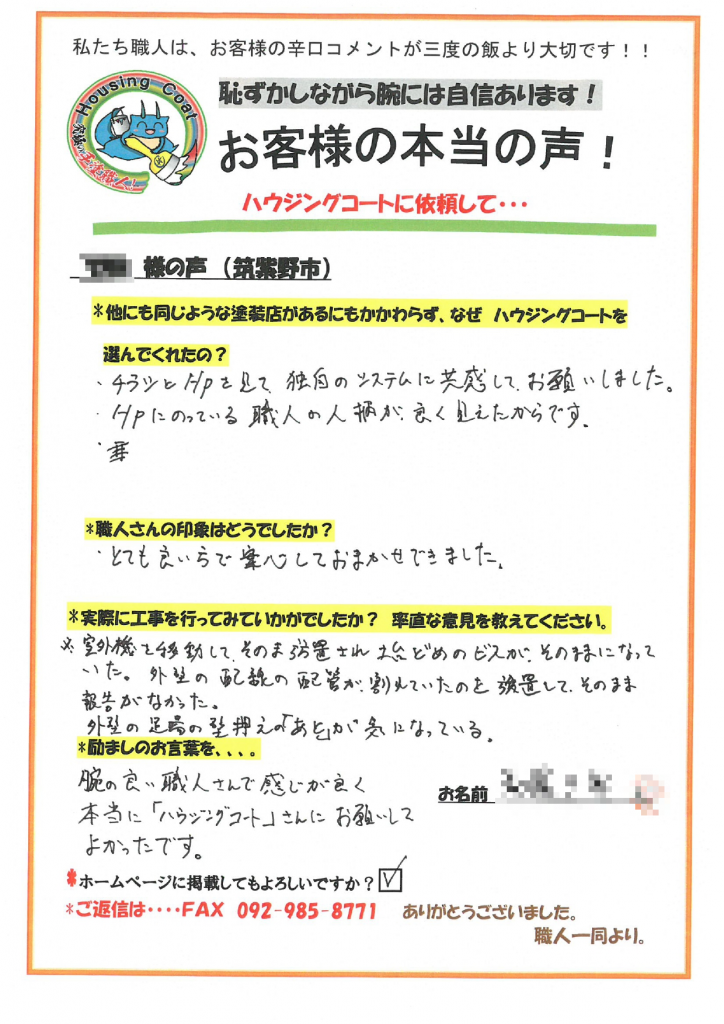 私たち職人は、お客様の辛口コメントが三度の飯より大切です！！
Housing Coat
恥ずかしながら腕には自信あります！
お客様の本当の声！
ハウジングコートに依頼して・・・
様の声（筑紫野市）
*他にも同じような塗装店があるにもかかわらず、なぜ ハウジングコートを
選んでくれたの？
・チラシとHpを見て、独自のシステムに共感して、お願いしました。
・Hpにのっている職人の人柄が、良く見えたからです。
・
*職人さんの印象はどうでしたか？
・とても良い方で安心しておまかせできました。
*実際に工事を行ってみていかがでしたか？ 率直な意見を教えてください。
※室外機を移動して、そのまま放置され 土台どめのビスが、そのままになって
いた。外壁の配線の配管が、割れていたのを放置して、そのまま
報告がなかった。
外壁の足場の壁押えの「あと」が気になっている。
*励ましのお言葉を、、、。
腕の良い職人さんで感じが良く
本当に「ハウジングコート」さんにお願いして
よかったです。
お名前
*ホームページに掲載してもよろしいですか？☑
*ご返信は・・・・FAX 092-985-8771 ありがとうございました。
職人一同より。